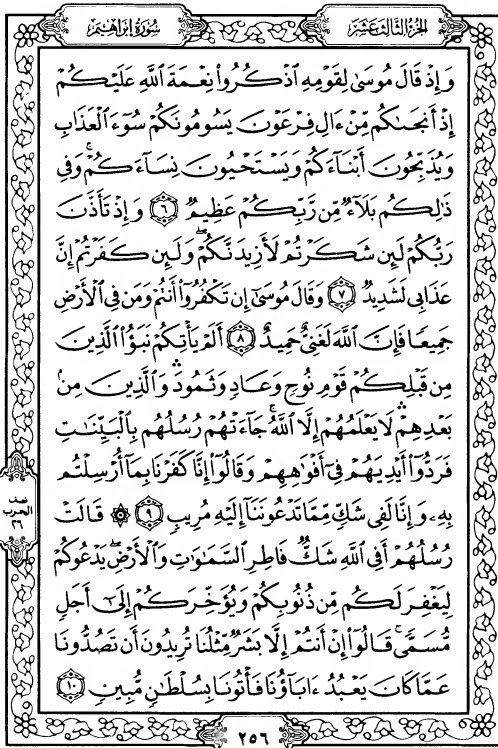 الجزء الثالث عشر
سورة إبراهيم
وَإِذْ قَالَ مُوسَىٰ لِقَوْمِهِ اذْكُرُوا۟ نِعْمَةَ اللَّهِ عَلَيْكُمْ
إِذْ أَنجَىٰكُم مِّنْ ءَالِ فِرْعَوْنَ يَسُومُونَكُمْ سُوٓءَ الْعَذَابِ
وَيُذَبِّحُونَ أَبْنَآءَكُمْ وَيَسْتَحْيُونَ نِسَآءَكُمْ ۚ وَفِى
ذَٰلِكُم بَلَآءٌ مِّن رَّبِّكُمْ عَظِيمٌ ۝٦ وَإِذْ تَأَذَّنَ
رَبُّكُمْ لَئِن شَكَرْتُمْ لَأَزِيدَنَّكُمْ ۖ وَلَئِن كَفَرْتُمْ إِنَّ
عَذَابِى لَشَدِيدٌ ۝٧ وَقَالَ مُوسَىٰٓ إِن تَكْفُرُوٓا۟ أَنتُمْ وَمَن فِى الْأَرْضِ
جَمِيعًا فَإِنَّ اللَّهَ لَغَنِىٌّ حَمِيدٌ ۝٨ أَلَمْ يَأْتِكُمْ نَبَؤُا۟ الَّذِينَ
مِن قَبْلِكُمْ قَوْمِ نُوحٍ وَعَادٍ وَثَمُودَ ۛ وَالَّذِينَ مِنۢ
بَعْدِهِمْ ۛ لَا يَعْلَمُهُمْ إِلَّا اللَّهُ ۚ جَآءَتْهُمْ رُسُلُهُم بِالْبَيِّنَٰتِ
فَرَدُّوٓا۟ أَيْدِيَهُمْ فِىٓ أَفْوَٰهِهِمْ وَقَالُوٓا۟ إِنَّا كَفَرْنَا بِمَآ أُرْسِلْتُم
بِهِۦ وَإِنَّا لَفِى شَكٍّ مِّمَّا تَدْعُونَنَآ إِلَيْهِ مُرِيبٍ ۝٩ ۞ قَالَتْ
رُسُلُهُمْ أَفِى اللَّهِ شَكٌّ فَاطِرِ السَّمَٰوَٰتِ وَالْأَرْضِ ۖ يَدْعُوكُمْ
لِيَغْفِرَ لَكُم مِّن ذُنُوبِكُمْ وَيُؤَخِّرَكُمْ إِلَىٰٓ أَجَلٍ
مُّسَمًّى ۚ قَالُوٓا۟ إِنْ أَنتُمْ إِلَّا بَشَرٌ مِّثْلُنَا تُرِيدُونَ أَن تَصُدُّونَا
عَمَّا كَانَ يَعْبُدُ ءَابَآؤُنَا فَأْتُونَا بِسُلْطَٰنٍ مُّبِينٍ ۝١٠
نصف
الحزب
٢٦
٢٥٦